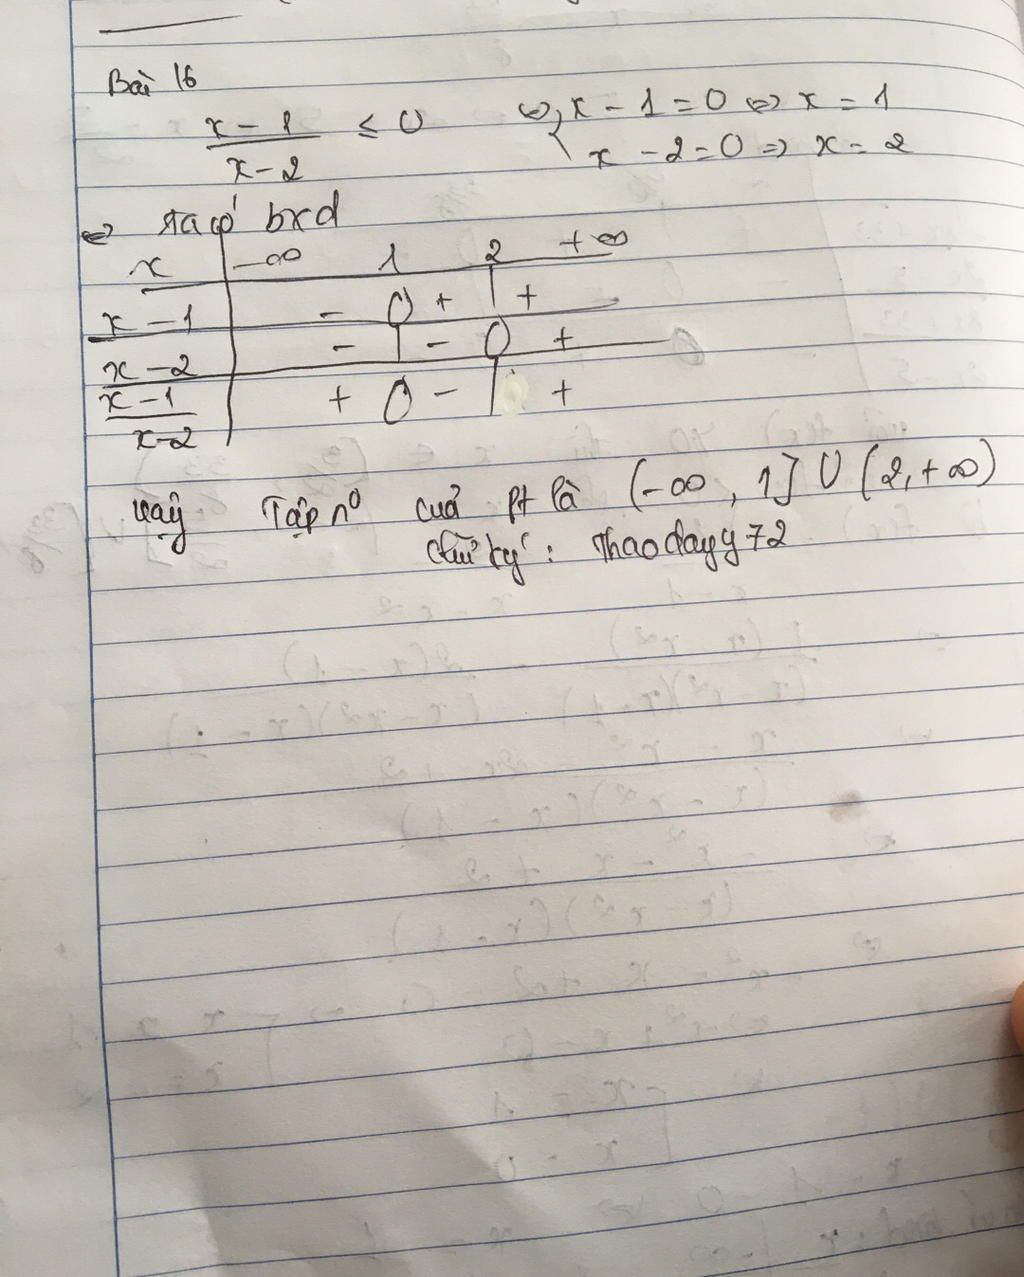 Bài 16
x - 1 / x - 2 ≤ 0 ⇔ { x - 1 = 0 ⇔ x = 1
x - 2 = 0 => x = 2
⇔ Ta có bxd
x | -∞ 1 2 +∞
x - 1 | - 0 + | +
x - 2 | - | - 0 +
x - 1 / x - 2 | + 0 - | +
Vậy Tập n⁰ cuả pt là (-∞, 1] ∪ (2, +∞)
chữ ký : Thaodayy72